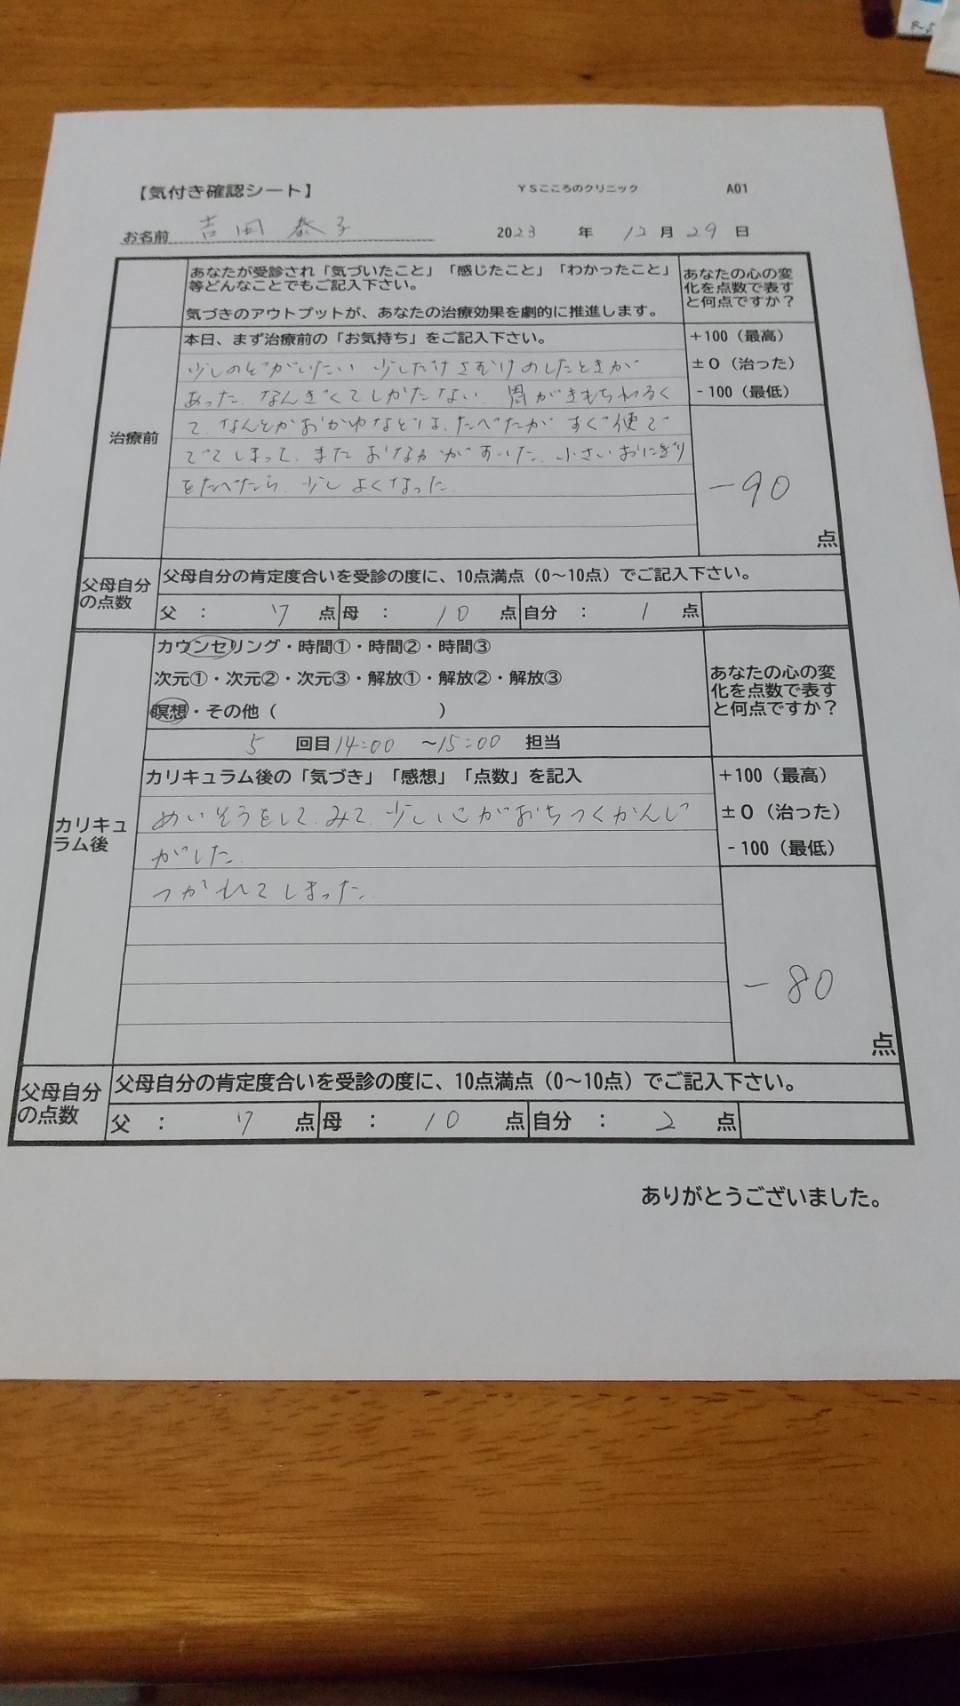 【気付き確認シート】 YSこころのクリニック A01
お名前 吉田 泰子 2023 年 12 月 29 日
あなたが受診され「気づいたこと」「感じたこと」「わかったこと」
等どんなことでもご記入下さい。
気づきのアウトプットが、あなたの治療効果を劇的に推進します。
あなたの心の変
化を点数で表す
と何点ですか？
治療前
本日、まず治療前の「お気持ち」をご記入下さい。
少しのどがいたい 少しだけさむけのしたときが
あった なんぎくてしかたない 胃がきもちわるく
て、なんとかおかゆなどは、たべたが すぐ便で
でてしまって、また おなかがすいた、小さいおにぎり
をたべたら 少しよくなった
+100（最高）
±0（治った）
-100（最低）
-90
点
父母自分
の点数
父母自分の肯定度合いを受診の度に、10点満点（0～10点）でご記入下さい。
父 ： 7 点 母 ： 10 点 自分 ： 1 点
カウンセリング・時間①・時間②・時間③
次元①・次元②・次元③・解放①・解放②・解放③
瞑想・その他（ ）
5 回目 14:00 ～15:00 担当
あなたの心の変
化を点数で表す
と何点ですか？
カリキュ
ラム後
カリキュラム後の「気づき」「感想」「点数」を記入
めいそうをして、みて、少し心がおちつくかんじ
がした
つかれてしまった
+100（最高）
±0（治った）
-100（最低）
-80
点
父母自分
の点数
父母自分の肯定度合いを受診の度に、10点満点（0～10点）でご記入下さい。
父 ： 7 点 母 ： 10 点 自分 ： 2 点
ありがとうございました。